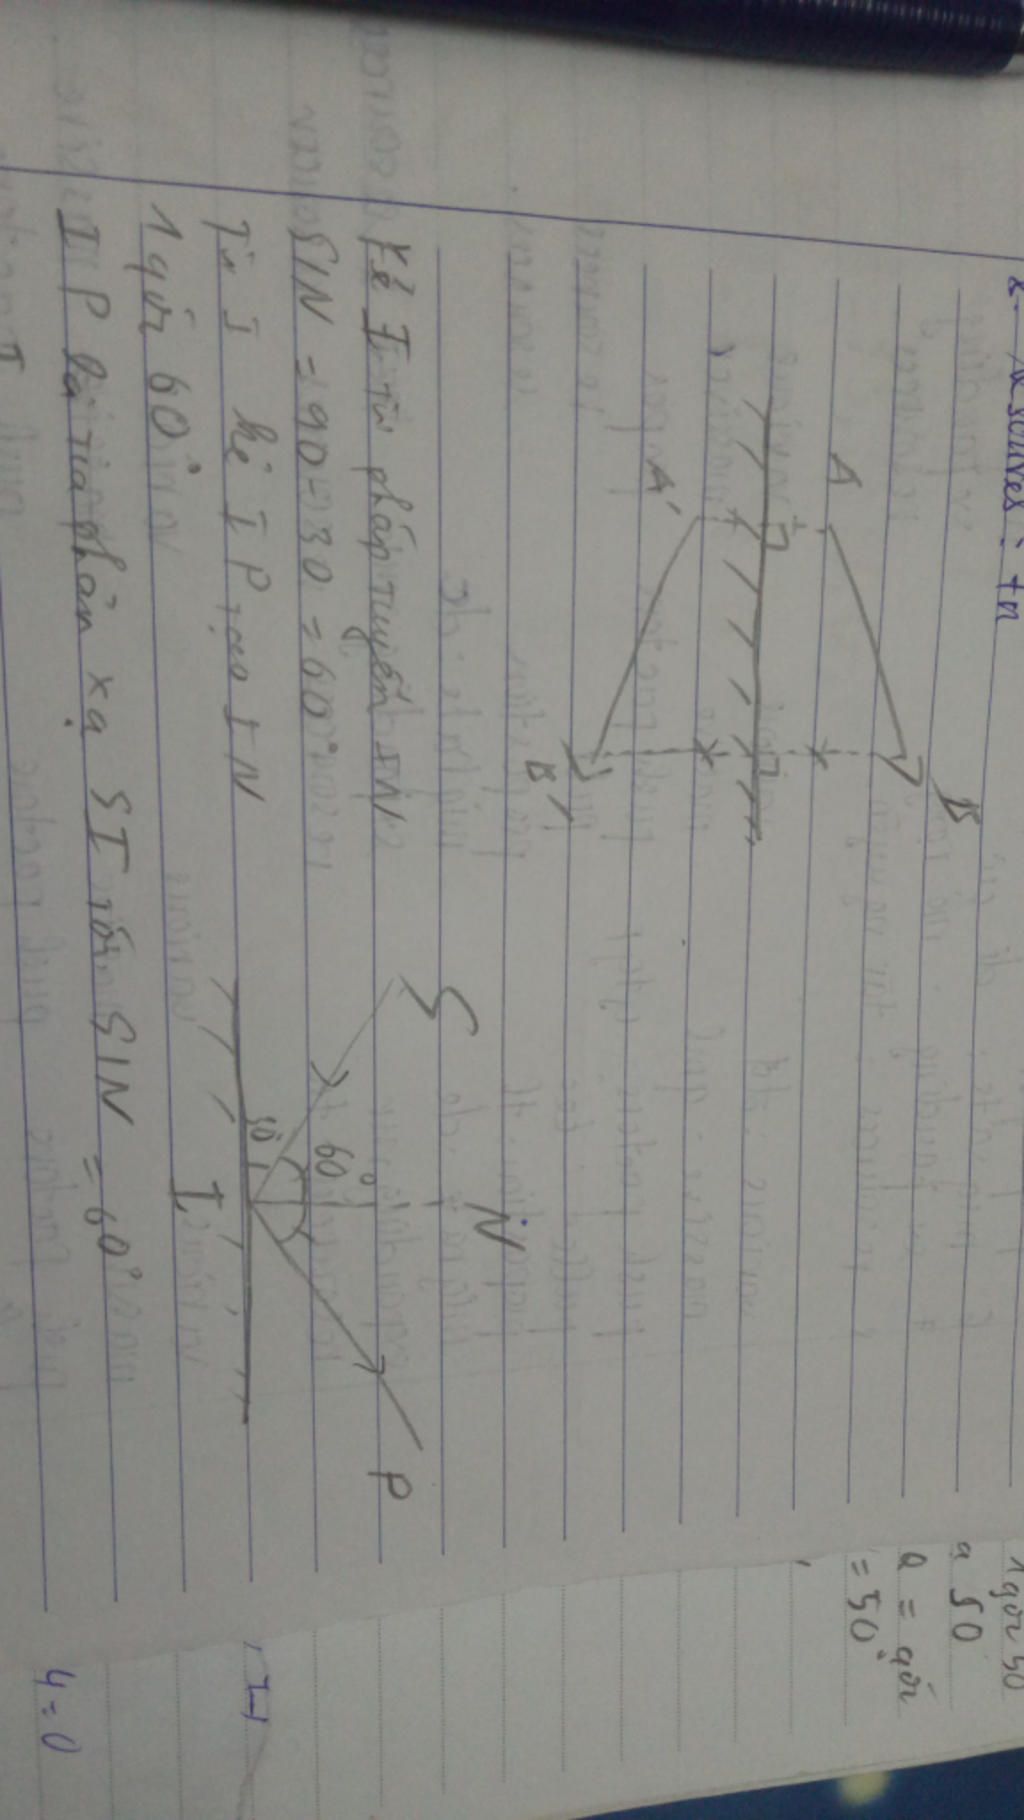 A
B
A'
B'
Kẻ I từ pháp tuyến IN
SIN = 90 - 30 = 60°
Từ I kẻ IP tạo IN
1 góc 60°
IP là tia phản xạ SI tới SIN = 60°
S
N
P
60°
30
I
1 góc 50
a 50
= góc
= 50°
4 = 0